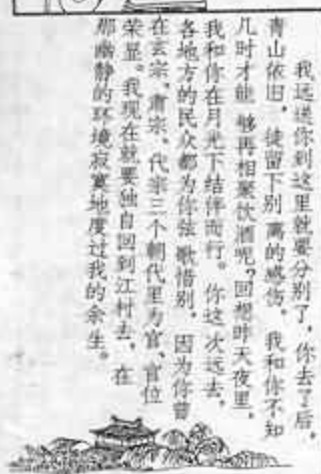 我远送你到这里就要分别了，你去了后，
青山依旧，徒留下别离的感伤。我和你不知
几时才能够再相聚饮酒呢？回想昨天夜里，
我和你在月光下结伴而行。你这次远去，
各地方的民众都为你弦歌惜别，因为你曾
在玄宗、肃宗、代宗三个朝代里为官、官位
荣显。我现在就要独自回到江村去，在
那幽静的环境寂寞地度过我的余生。